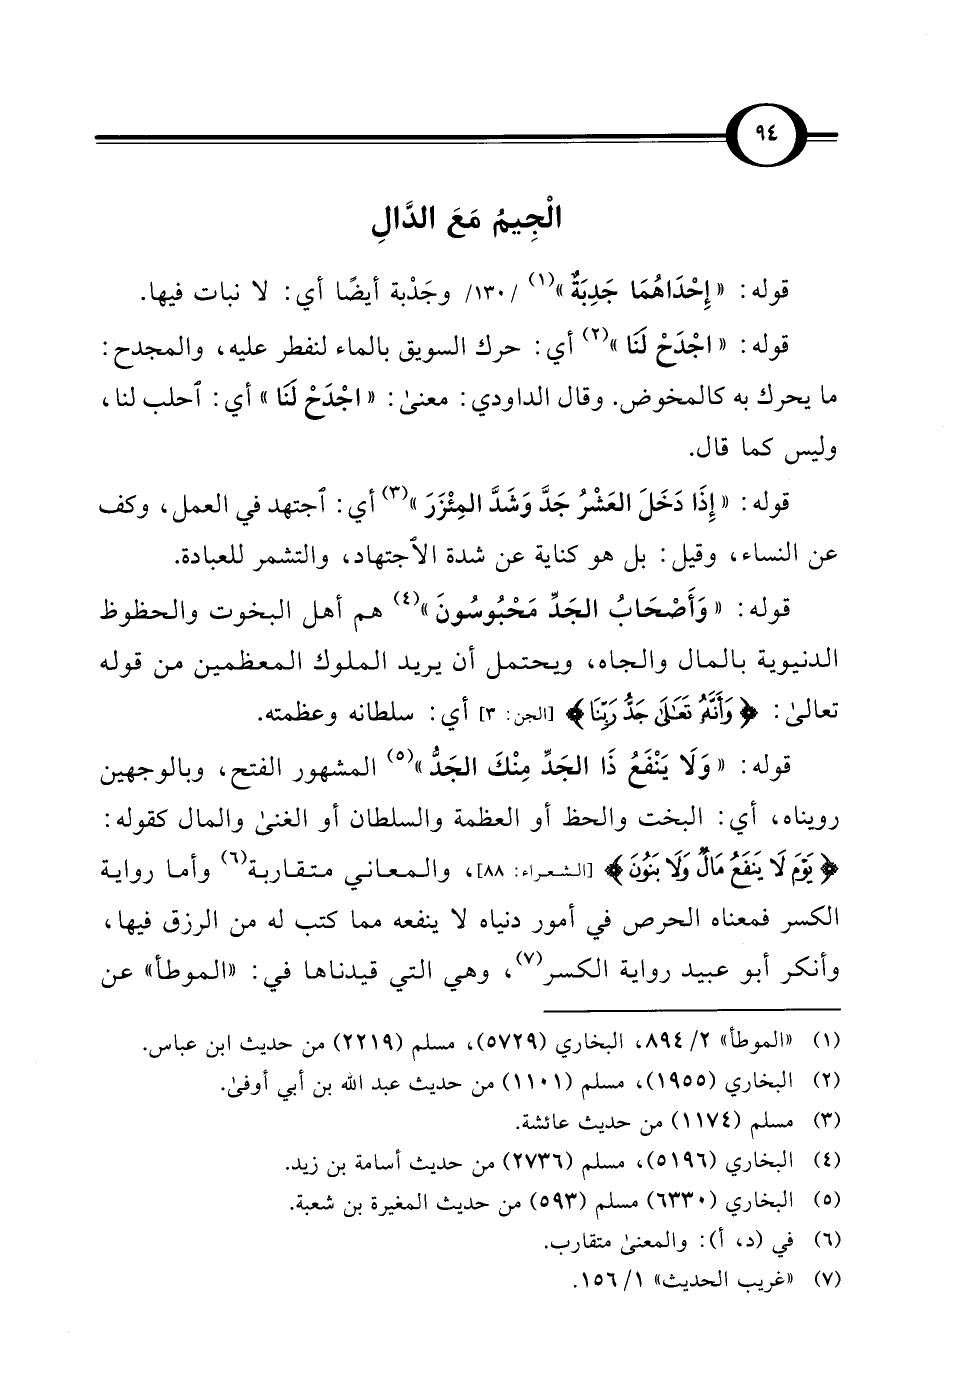 ٩٤
الْجِيمُ مَعَ الدَّالِ
قوله: «إِحْدَاهُمَا جَدِبَةٌ»(١) /١٣٠/ وجَدْبة أيضًا أي: لا نبات فيها.
قوله: «اجْدَحْ لَنَا»(٢) أي: حرك السويق بالماء لنفطر عليه، والمجدح:
ما يحرك به كالمخوض. وقال الداودي: معنىٰ: «اجْدَحْ لَنَا» أي: ٱحلب لنا،
وليس كما قال.
قوله: «إِذَا دَخَلَ العَشْرُ جَدَّ وَشَدَّ المِئْزَرَ»(٣) أي: ٱجتهد في العمل، وكف
عن النساء، وقيل: بل هو كناية عن شدة الٱجتهاد، والتشمر للعبادة.
قوله: «وَأَصْحَابُ الجَدِّ مَحْبُوسُونَ»(٤) هم أهل البخوت والحظوظ
الدنيوية بالمال والجاه، ويحتمل أن يريد الملوك المعظمين من قوله
تعالىٰ: ﴿وَأَنَّهُ تَعَالَىٰ جَدُّ رَبِّنَا﴾ [الجن: ٣] أي: سلطانه وعظمته.
قوله: «وَلَا يَنْفَعُ ذَا الجَدِّ مِنْكَ الجَدُّ»(٥) المشهور الفتح، وبالوجهين
رويناه، أي: البخت والحظ أو العظمة والسلطان أو الغنىٰ والمال كقوله:
﴿يَوْمَ لَا يَنفَعُ مَالٌ وَلَا بَنُونَ﴾ [الشعراء: ٨٨]، والمعاني متقاربة(٦) وأما رواية
الكسر فمعناه الحرص في أمور دنياه لا ينفعه مما كتب له من الرزق فيها،
وأنكر أبو عبيد رواية الكسر(٧)، وهي التي قيدناها في: «الموطأ» عن
(١) «الموطأ» ٢/ ٨٩٤، البخاري (٥٧٢٩)، مسلم (٢٢١٩) من حديث ابن عباس.
(٢) البخاري (١٩٥٥)، مسلم (١١٠١) من حديث عبد الله بن أبي أوفىٰ.
(٣) مسلم (١١٧٤) من حديث عائشة.
(٤) البخاري (٥١٩٦)، مسلم (٢٧٣٦) من حديث أسامة بن زيد.
(٥) البخاري (٦٣٣٠) مسلم (٥٩٣) من حديث المغيرة بن شعبة.
(٦) في (د، أ): والمعنىٰ متقارب.
(٧) «غريب الحديث» ١/ ١٥٦.